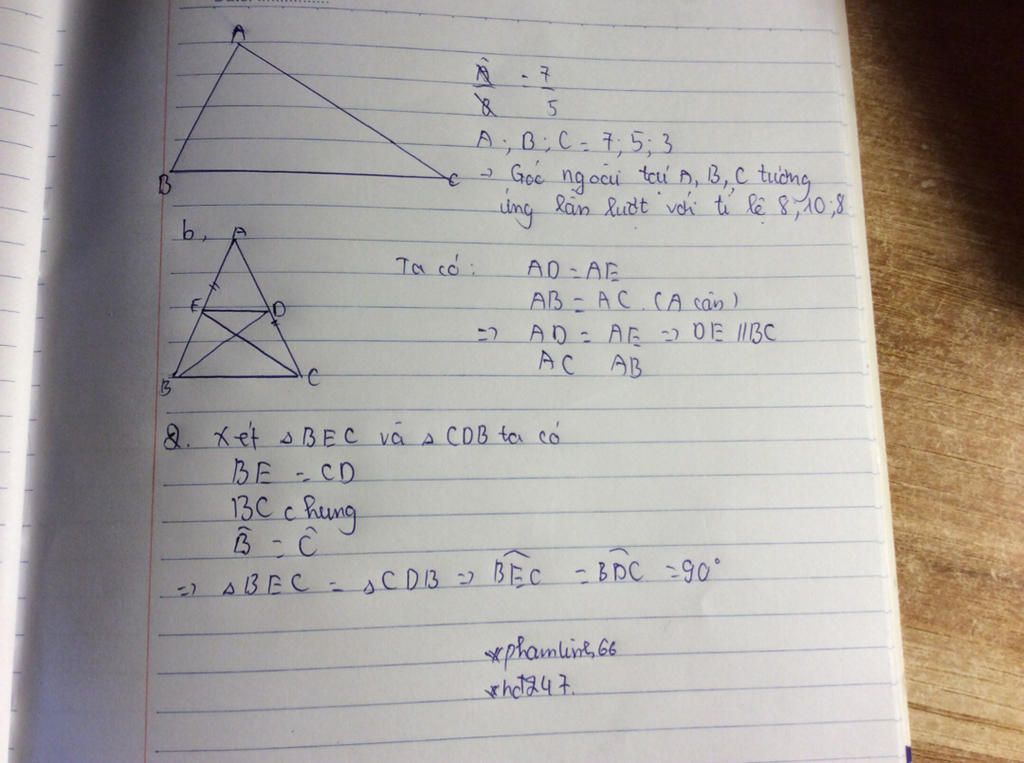 A
B
C
Â = 7
8 5
A; B; C = 7; 5; 3
→ Góc ngoài tại A, B, C tương
ứng lần lượt với tỉ lệ 8; 10; 8
b,
A
E
D
B
C
Ta có: AD = AE
AB = AC. (A cân)
=> AD = AE => DE // BC
AC AB
2. Xét △ BEC và △ CDB ta có
BE = CD
BC chung
B̂ = Ĉ
=> △ BEC = △ CDB => BEC = BDC = 90°
*phamlinh66
*hđ247.